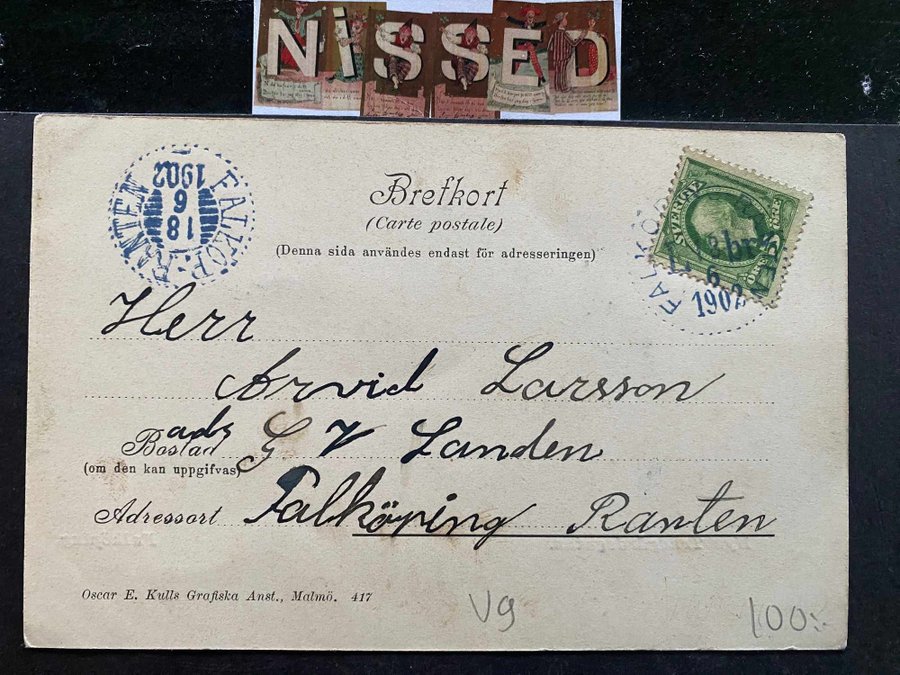 NISSED
Brefkort
(Carte postale)
(Denna sida användes endast för adresseringen)
FALKÖP.-RANTEN
18
6
1902
SVERIGE
FALKÖP
6
1902
Herr
Arvid Larsson
Bostad adr G V Landen
(om den kan uppgifvas)
Adressort Falköping Ranten
Oscar E. Kulls Grafiska Anst., Malmö. 417
V9
100:-